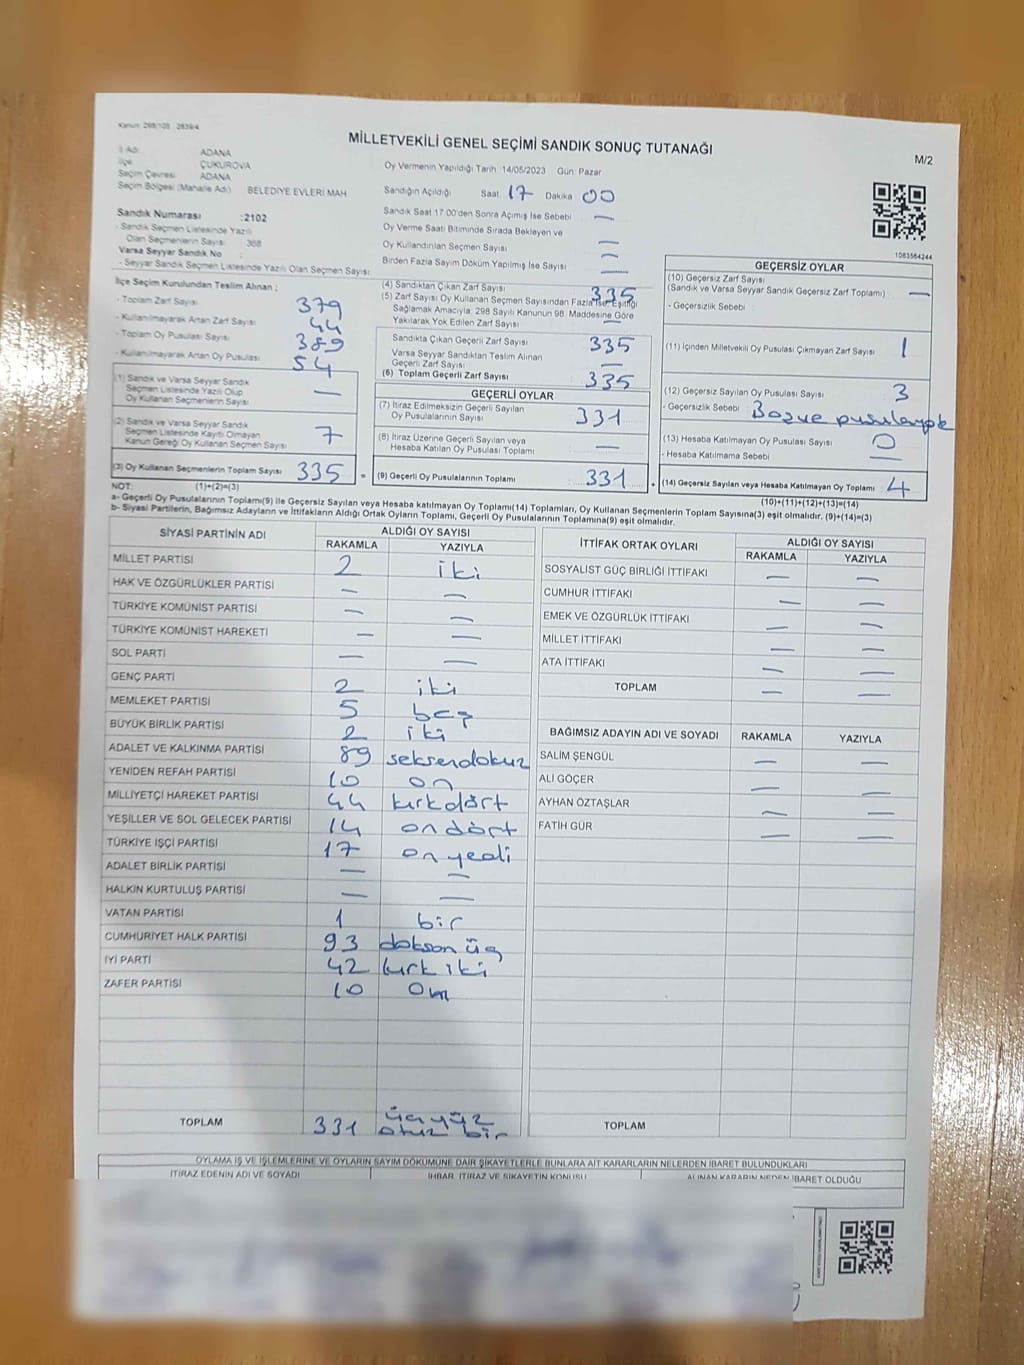 Kanun: 298/105 : 2839/4
MİLLETVEKİLİ GENEL SEÇİMİ SANDIK SONUÇ TUTANAĞI
M/2
İl Adı ADANA
İlçe ÇUKUROVA
Seçim Çevresi ADANA
Seçim Bölgesi (Mahalle Adı) BELEDİYE EVLERİ MAH
Oy Vermenin Yapıldığı Tarih 14/05/2023 Gün: Pazar
Sandığın Açıldığı Saat 17 Dakika 00
Sandık Saat 17.00'den Sonra Açılmış İse Sebebi —
Oy Verme Saati Bitiminde Sırada Bekleyen ve
Oy Kullandırılan Seçmen Sayısı —
Birden Fazla Sayım Döküm Yapılmış İse Sayısı —
1083564244
Sandık Numarası :2102
- Sandık Seçmen Listesinde Yazılı
Olan Seçmenlerin Sayısı 368
Varsa Seyyar Sandık No :
- Seyyar Sandık Seçmen Listesinde Yazılı Olan Seçmen Sayısı:
İlçe Seçim Kurulundan Teslim Alınan :
- Toplam Zarf Sayısı 379
- Kullanılmayarak Artan Zarf Sayısı 44
- Toplam Oy Pusulası Sayısı 389
- Kullanılmayarak Artan Oy Pusulası 54
(1) Sandık ve Varsa Seyyar Sandık
Seçmen Listesinde Yazılı Olup
Oy Kullanan Seçmenlerin Sayısı —
(2) Sandık ve Varsa Seyyar Sandık
Seçmen Listesinde Kayıtlı Olmayan
Kanun Gereği Oy Kullanan Seçmen Sayısı 7
(3) Oy Kullanan Seçmenlerin Toplam Sayısı 335 =
(4) Sandıktan Çıkan Zarf Sayısı 335
(5) Zarf Sayısı Oy Kullanan Seçmen Sayısından Fazla İse, Eşitliği
Sağlamak Amacıyla; 298 Sayılı Kanunun 98. Maddesine Göre
Yakılarak Yok Edilen Zarf Sayısı —
Sandıkta Çıkan Geçerli Zarf Sayısı 335
Varsa Seyyar Sandıktan Teslim Alınan
Geçerli Zarf Sayısı —
(6) Toplam Geçerli Zarf Sayısı 335
GEÇERLİ OYLAR
(7) İtiraz Edilmeksizin Geçerli Sayılan
Oy Pusulalarının Sayısı 331
(8) İtiraz Üzerine Geçerli Sayılan veya
Hesaba Katılan Oy Pusulası Toplamı —
(9) Geçerli Oy Pusulalarının Toplamı : 331 +
GEÇERSİZ OYLAR
(10) Geçersiz Zarf Sayısı
(Sandık ve Varsa Seyyar Sandık Geçersiz Zarf Toplamı) —
- Geçersizlik Sebebi
(11) İçinden Milletvekili Oy Pusulası Çıkmayan Zarf Sayısı 1
(12) Geçersiz Sayılan Oy Pusulası Sayısı 3
- Geçersizlik Sebebi
(13) Hesaba Katılmayan Oy Pusulası Sayısı 0
- Hesaba Katılmama Sebebi —
(14) Geçersiz Sayılan veya Hesaba Katılmayan Oy Toplamı 4
NOT: (1)+(2)=(3)
(10)+(11)+(12)+(13)=(14)
a- Geçerli Oy Pusulalarının Toplamı(9) ile Geçersiz Sayılan veya Hesaba katılmayan Oy Toplamı(14) Toplamları, Oy Kullanan Seçmenlerin Toplam Sayısına(3) eşit olmalıdır. (9)+(14)=(3)
b- Siyasi Partilerin, Bağımsız Adayların ve İttifakların Aldığı Ortak Oyların Toplamı, Geçerli Oy Pusulalarının Toplamına(9) eşit olmalıdır.
SİYASİ PARTİNİN ADI ALDIĞI OY SAYISI
RAKAMLA YAZIYLA
MİLLET PARTİSİ 2 iki
HAK VE ÖZGÜRLÜKLER PARTİSİ — —
TÜRKİYE KOMÜNİST PARTİSİ — —
TÜRKİYE KOMÜNİST HAREKETİ — —
SOL PARTİ — —
GENÇ PARTİ 2 iki
MEMLEKET PARTİSİ 5 beş
BÜYÜK BİRLİK PARTİSİ 2 iki
ADALET VE KALKINMA PARTİSİ 89 seksendokuz
YENİDEN REFAH PARTİSİ 10 on
MİLLİYETÇİ HAREKET PARTİSİ 44 kırkdört
YEŞİLLER VE SOL GELECEK PARTİSİ 14 ondört
TÜRKİYE İŞÇİ PARTİSİ 17 onyedi
ADALET BİRLİK PARTİSİ — —
HALKIN KURTULUŞ PARTİSİ — —
VATAN PARTİSİ 1 bir
CUMHURİYET HALK PARTİSİ 93 doksan üç
İYİ PARTİ 42 kırk iki
ZAFER PARTİSİ 10 on
TOPLAM 331 üçyüz
otuz bir
İTTİFAK ORTAK OYLARI ALDIĞI OY SAYISI
RAKAMLA YAZIYLA
SOSYALİST GÜÇ BİRLİĞİ İTTİFAKI — —
CUMHUR İTTİFAKI — —
EMEK VE ÖZGÜRLÜK İTTİFAKI — —
MİLLET İTTİFAKI — —
ATA İTTİFAKI — —
TOPLAM — —
BAĞIMSIZ ADAYIN ADI VE SOYADI RAKAMLA YAZIYLA
SALİM ŞENGÜL — —
ALİ GÖÇER — —
AYHAN ÖZTAŞLAR — —
FATİH GÜR — —
TOPLAM
OYLAMA İŞ VE İŞLEMLERİNE VE OYLARIN SAYIM DÖKÜMÜNE DAİR ŞİKAYETLERLE BUNLARA AİT KARARLARIN NELERDEN İBARET BULUNDUKLARI
İTİRAZ EDENİN ADI VE SOYADI İHBAR, İTİRAZ VE ŞİKAYETİN KONUSU ALINAN KARARIN NEDEN İBARET OLDUĞU